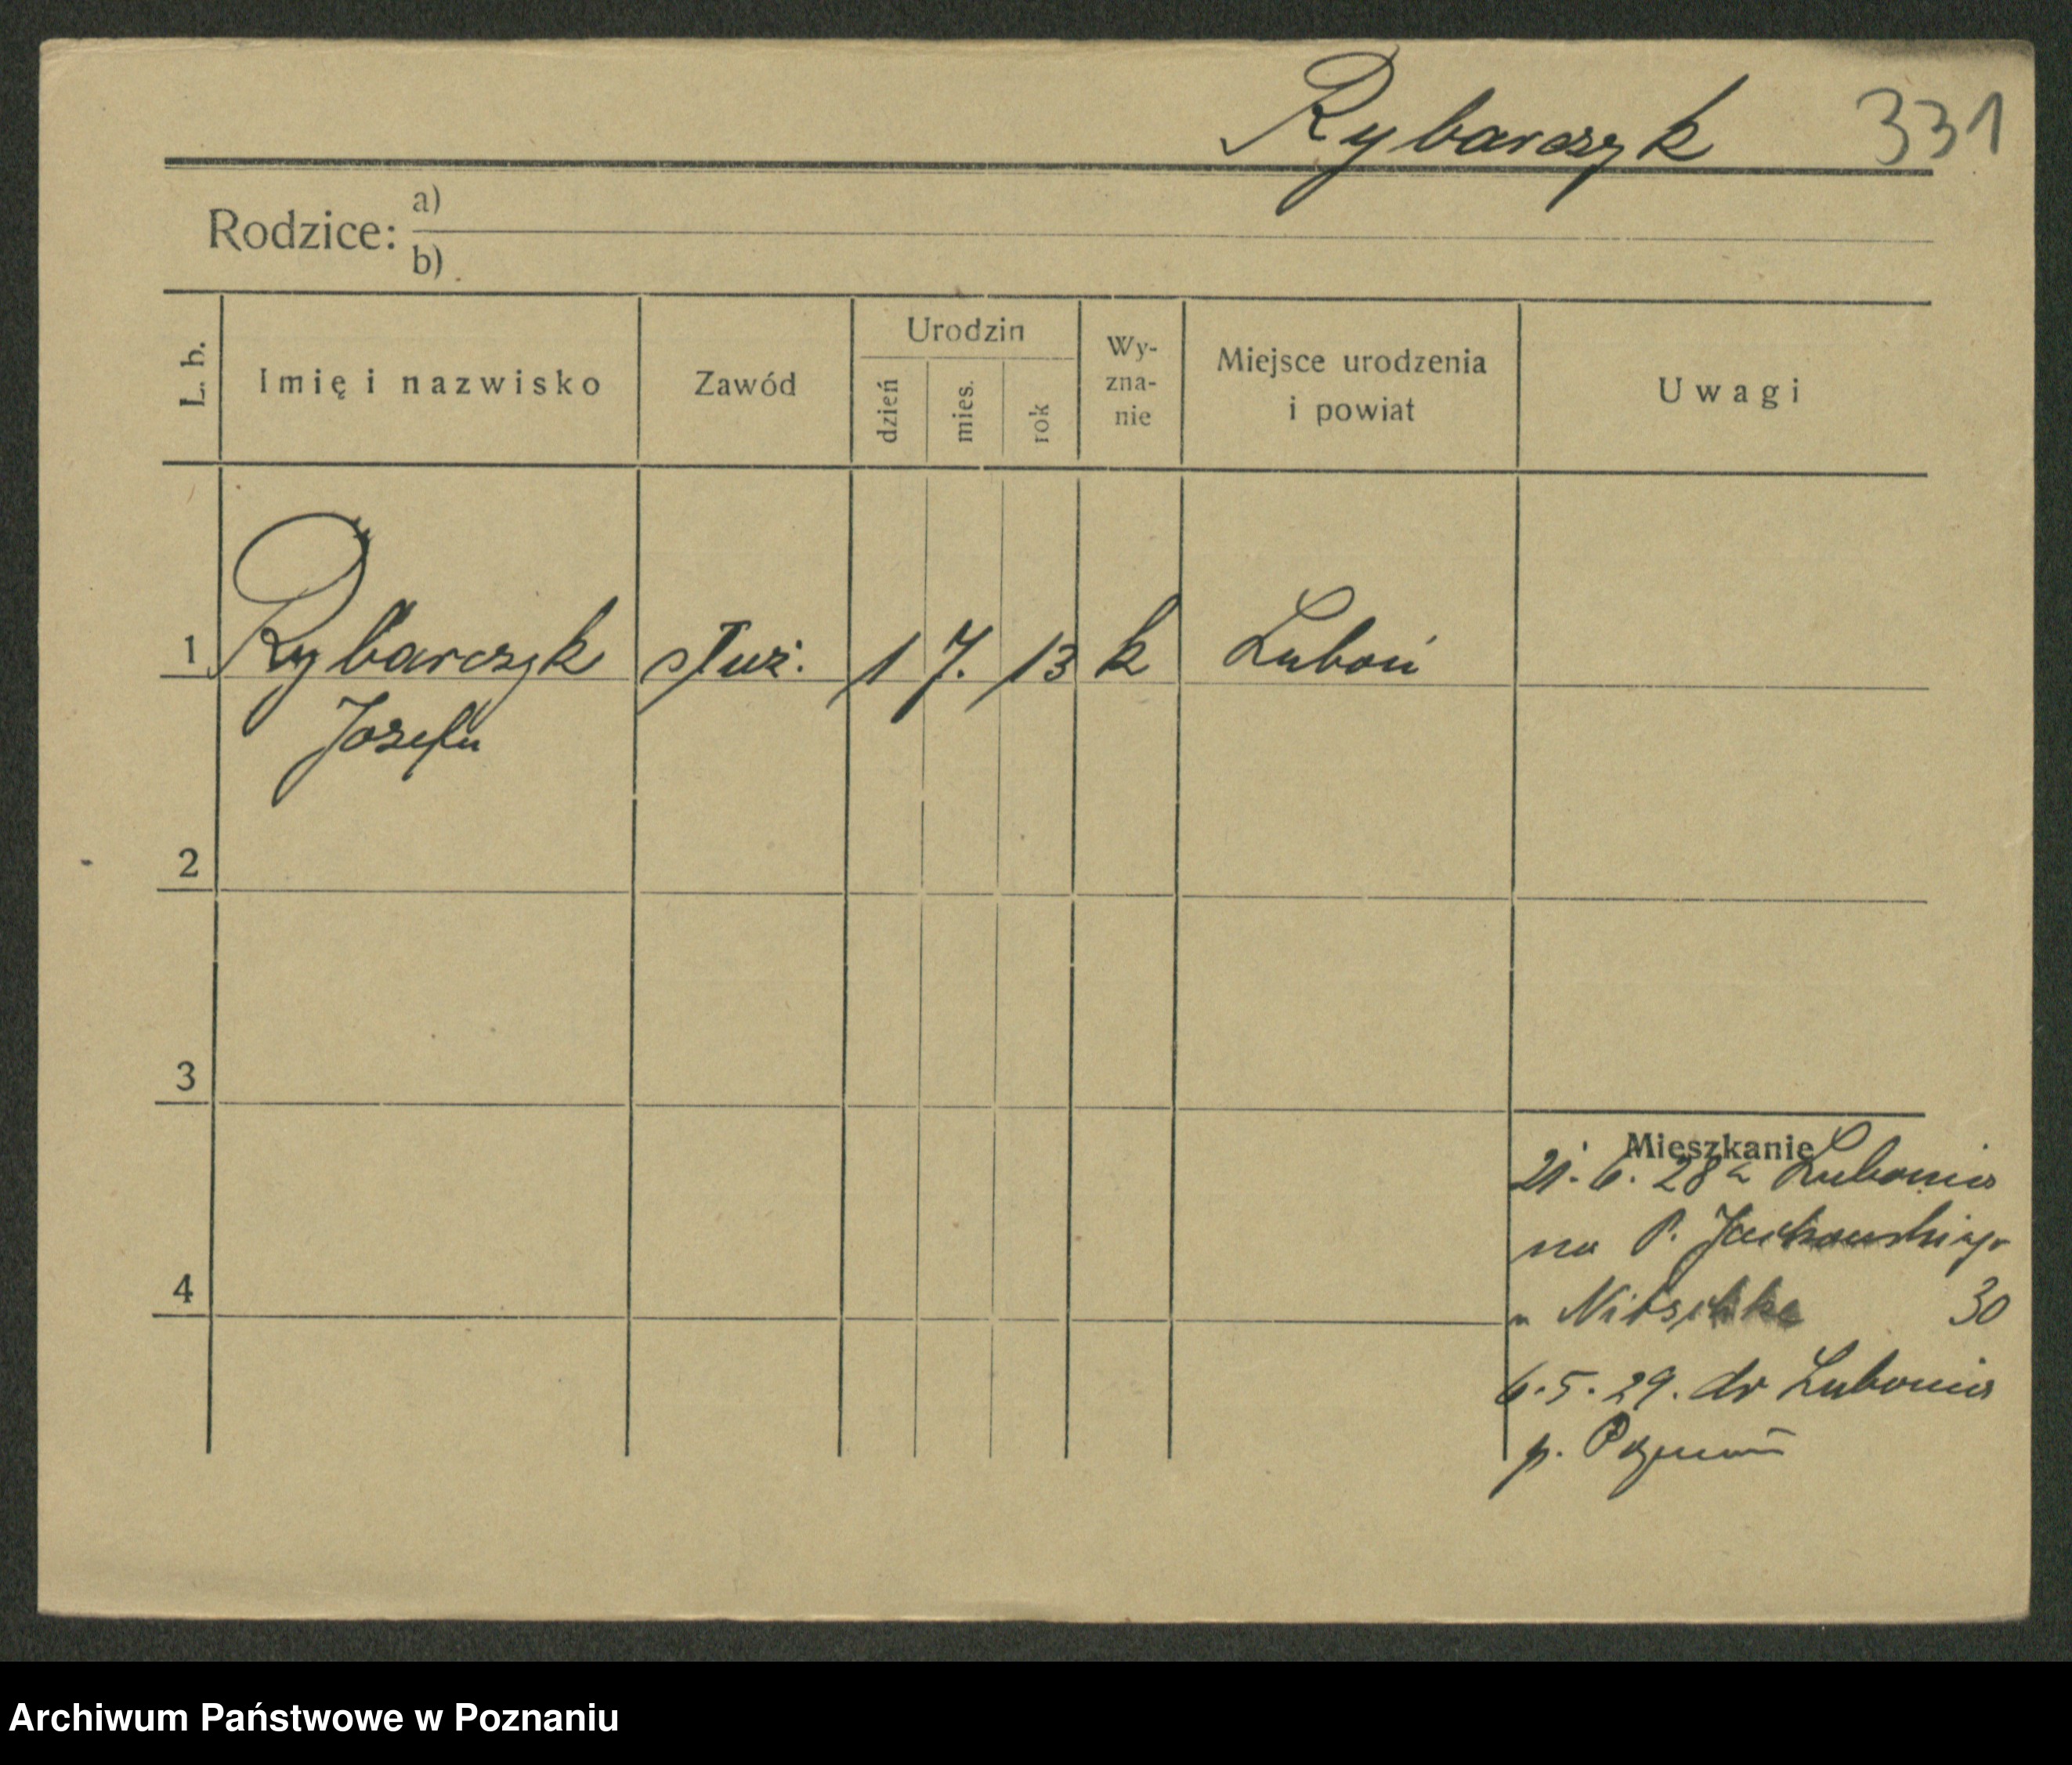 Rybarczyk 331
Rodzice: a)
b)
L. b. Imię i nazwisko Zawód Urodzin dzień mies. rok Wy-zna-nie Miejsce urodzenia i powiat Uwagi
1 Rybarczyk służ. 1 7. 13 k Luboń
Józefa
2
3
Mieszkanie
21. 6. 28 z Lubonia
na P. Jackowskiego
4
u Nitschke 30
6. 5. 29. do Lubonia
p. Poznań
Archiwum Państwowe w Poznaniu